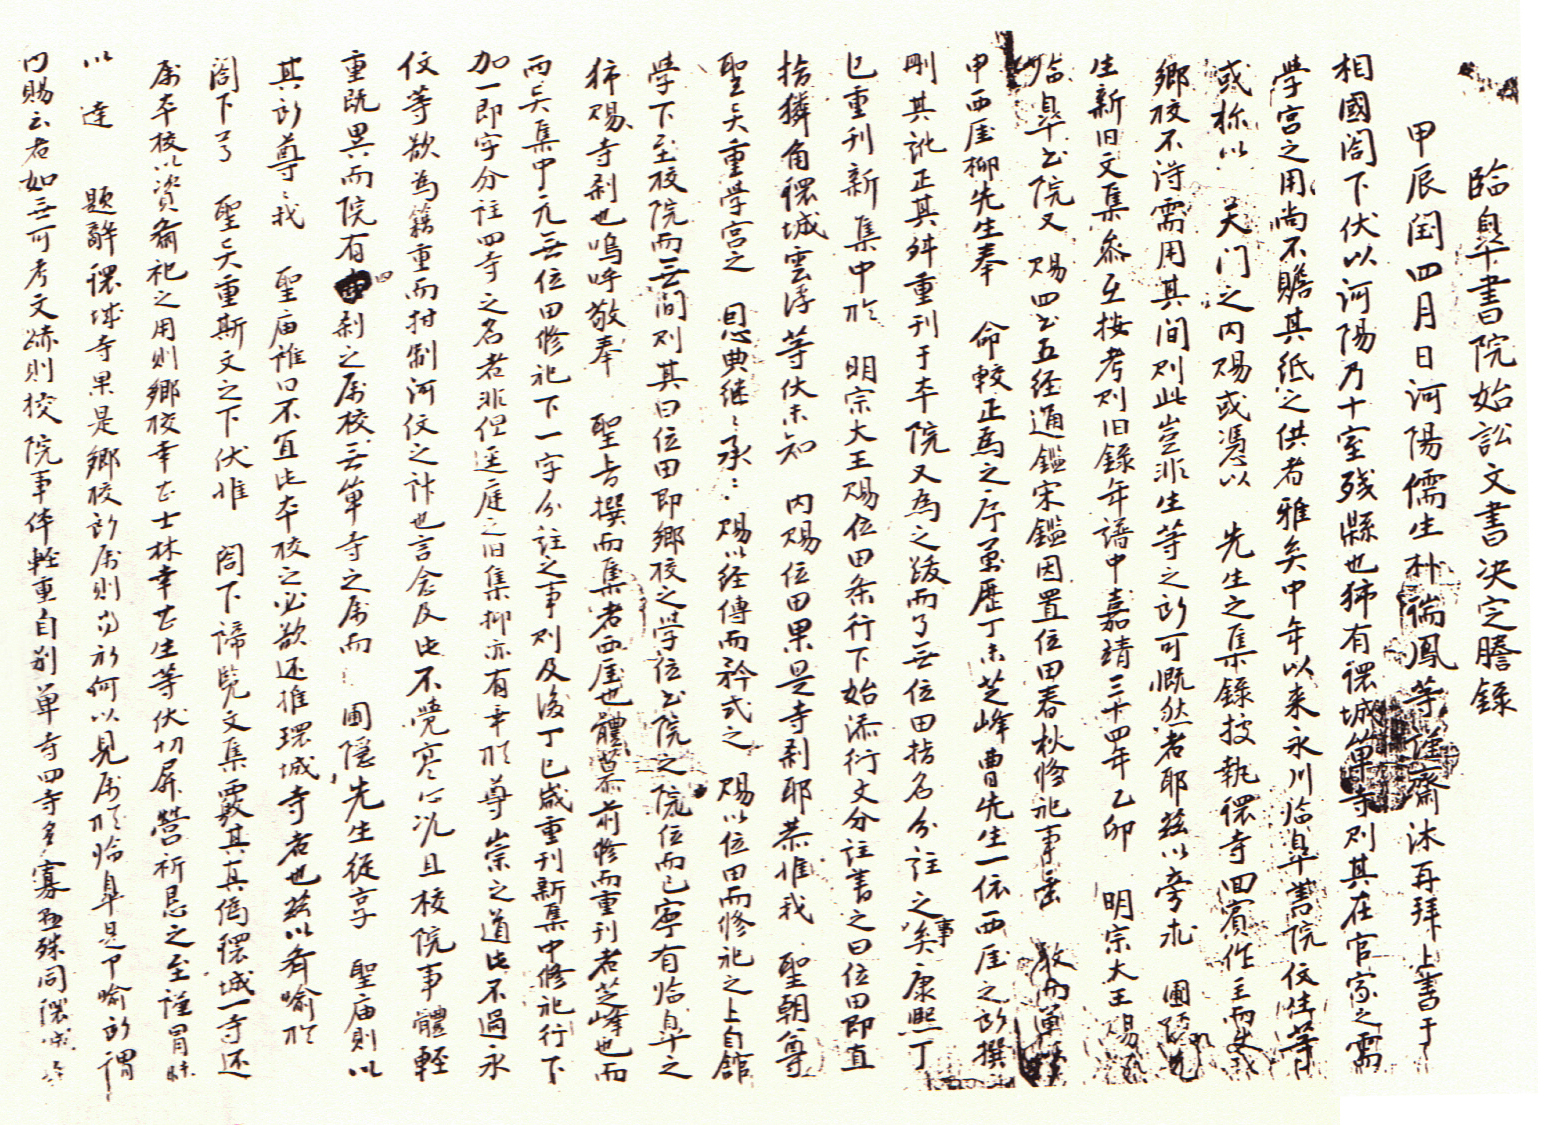 臨皐書院始訟文書決定謄錄
甲辰閏四月日河陽儒生朴瑞鳳等謹齋沐再拜上書于
相國閤下伏以河陽乃十室殘縣也 有環城單寺則其在官家之需
學宮之用尚不贍其紙之供者雅矣中年以来永川临皐書院 等
或称以 天门之内賜或憑以 先生之集錄 執環寺回賓作主而
鄉校不淂需用其間則此豈非生等之所可慨然者耶玆以旁 圃隱先
生新旧文集叅互按考則旧錄年譜中嘉靖三十四年乙卯 明宗大王賜
临皐書院又 賜四书五経通鑑宋鑑因置位田春秋修祀事
申西厓柳先生奉 命較正為之序萬歷丁未芝峰曹先生一依西厓之所撰
刪其訛正其舛重刊于本院又為之跋而了無位田指名分註之事矣康熙丁
已重刊新集中於 明宗大王賜位田条行下始添衍文分註書之曰位田即直
指獜角環城雲浮等伏未知 内賜位田果是寺刹耶恭惟我 聖朝尊
聖矢重學宮之 恩典継〻承〻賜以経傳而矜式之 賜以位田而修祀之上自舘
學下至校院而無間則其曰位田即鄉校之學位书院之院位而已寧有临皐之
 賜寺刹也嗚呼敬奉 聖旨撰而集者西厓也體 前修而重刊者芝峰也而
而矢集中元無位田修祀下一字分註之事則及後丁已歲重刊新集中修祀行下
加一即字分註四寺之名者非但逕庭之旧集抑亦有乖於尊崇之道此不過永
伩等欲為籍重而拑制河伩之計也言念及此不覺寒心况且校院事體輕
重既異而院有四刹之屬校無單寺之屬而 圃隱先生従享 聖庙則以
其所尊〻我 聖庙誰曰不宜此本校之必欲还推環城寺者也玆以有喻於
閤下了 聖矢重斯文之下伏惟 閤下諦覧文集覈其真偽環城一寺还
属本校以資 祀之用則鄉校幸甚士林幸甚生等伏切屏營祈恳之至謹冒昧
以 達 題辭環城寺果是鄉校所属則 何以見属於临皐是 喻所謂
内賜云者如無可考文蹟則校院事体輕重自别單寺四寺多寡 殊同環城